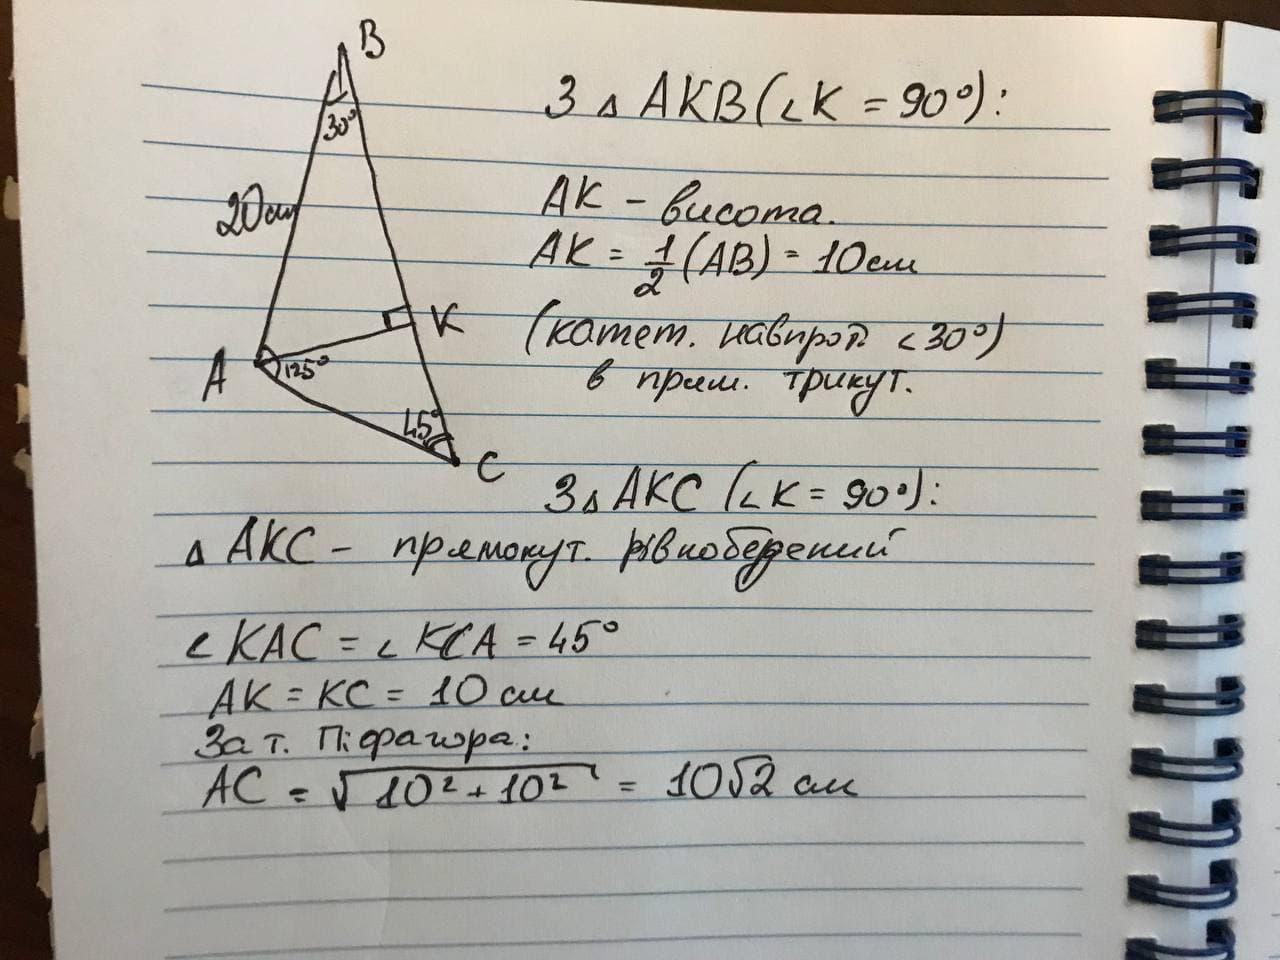 B
30°
20см
A
125°
K
45°
C
З △ AKB (∠K = 90°):
AK - висота.
AK = 1/2 (AB) = 10см
(катет. навпрот. ∠30°)
в прям. трикут.
З △ AKC (∠K = 90°):
△ AKC - прямокут. рівнобедрений
∠KAC = ∠KCA = 45°
AK = KC = 10 см
За т. Піфагора:
AC = √10² + 10² = 10√2 см